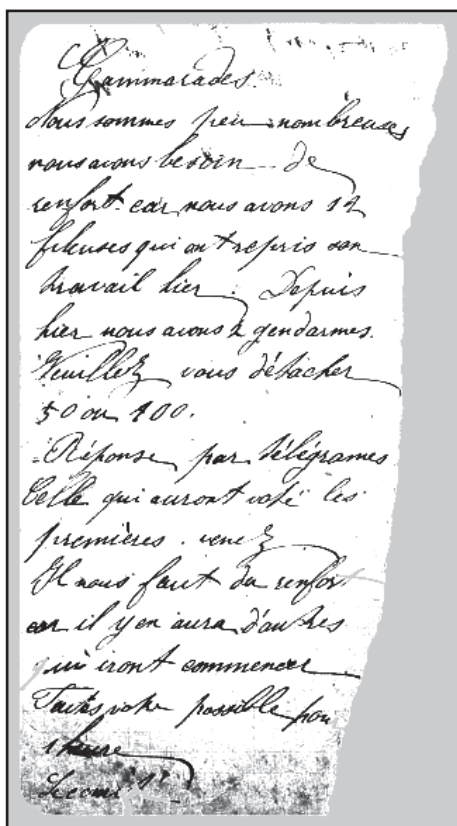 Cammarades.
Nous sommes peu nombreuses
nous avons besoin de
renfort car nous avons 12
fileuses qui ont repris son
travail hier. Depuis
hier nous avons 2 gendarmes.
Veuillez vous détacher
50 ou 100.
Réponse par télégrames
Celle qui auront voté les
premières. venez
Il nous faut du renfort
car il y en aura d'autres
qui iront commencer
Faites votre possible pour
1 heure